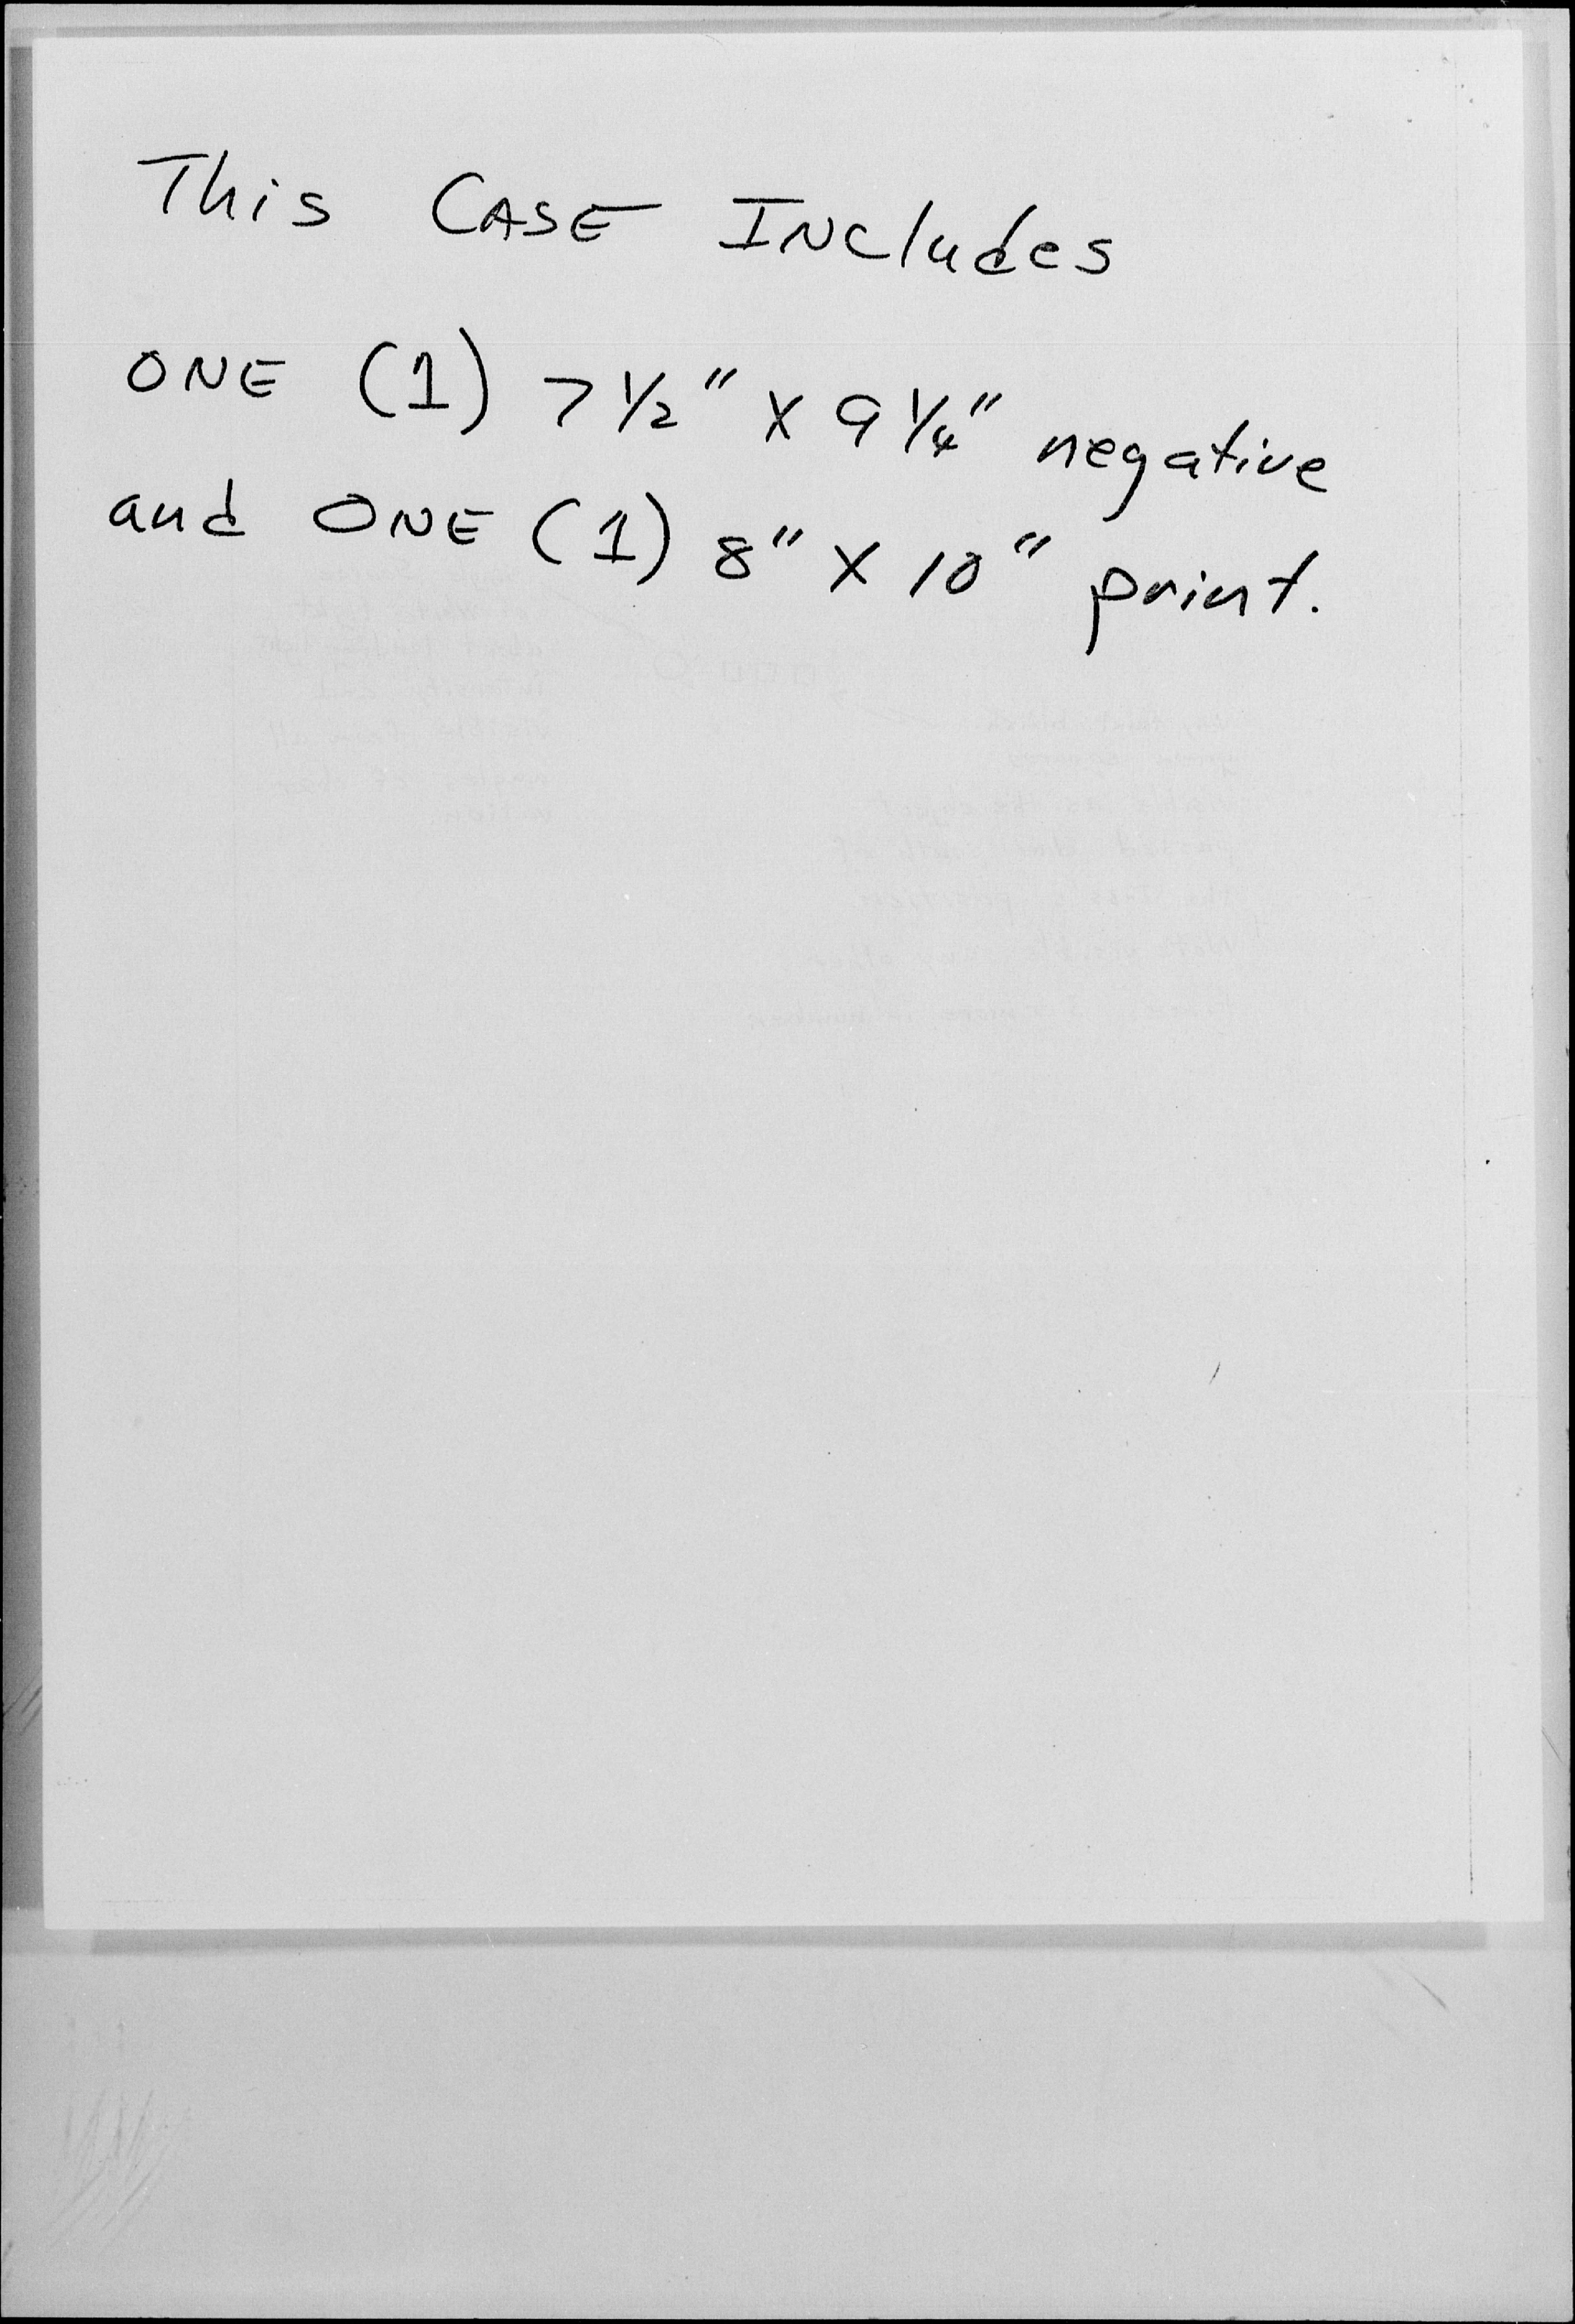 This CASE INcludes
ONE (1) 7 1/2" X 9 1/4" negative
and ONE (1) 8" X 10" print.